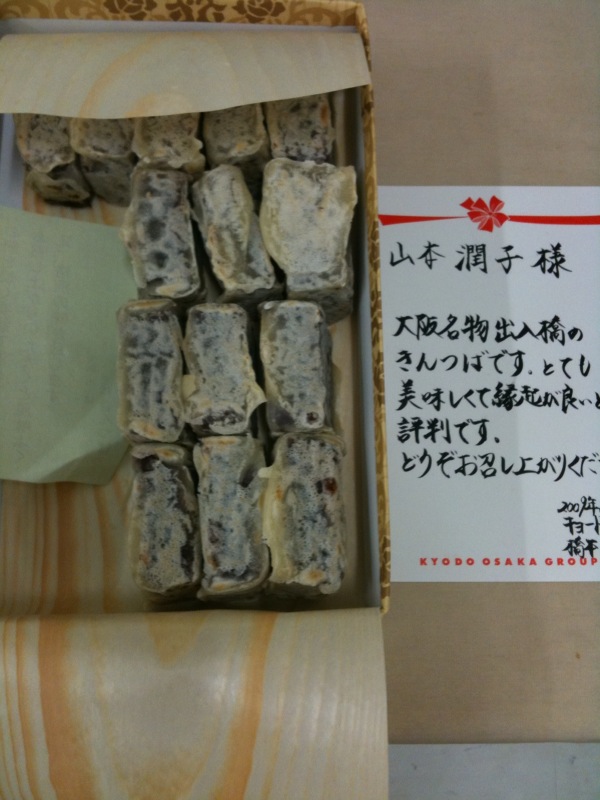 山本 潤子 様
大阪名物出入橋の
きんつばです。とても
美味しくて縁起が良いと
評判です。
どうぞお召し上がりくだ
2009年
キョード
橋本
KYODO OSAKA GROUP